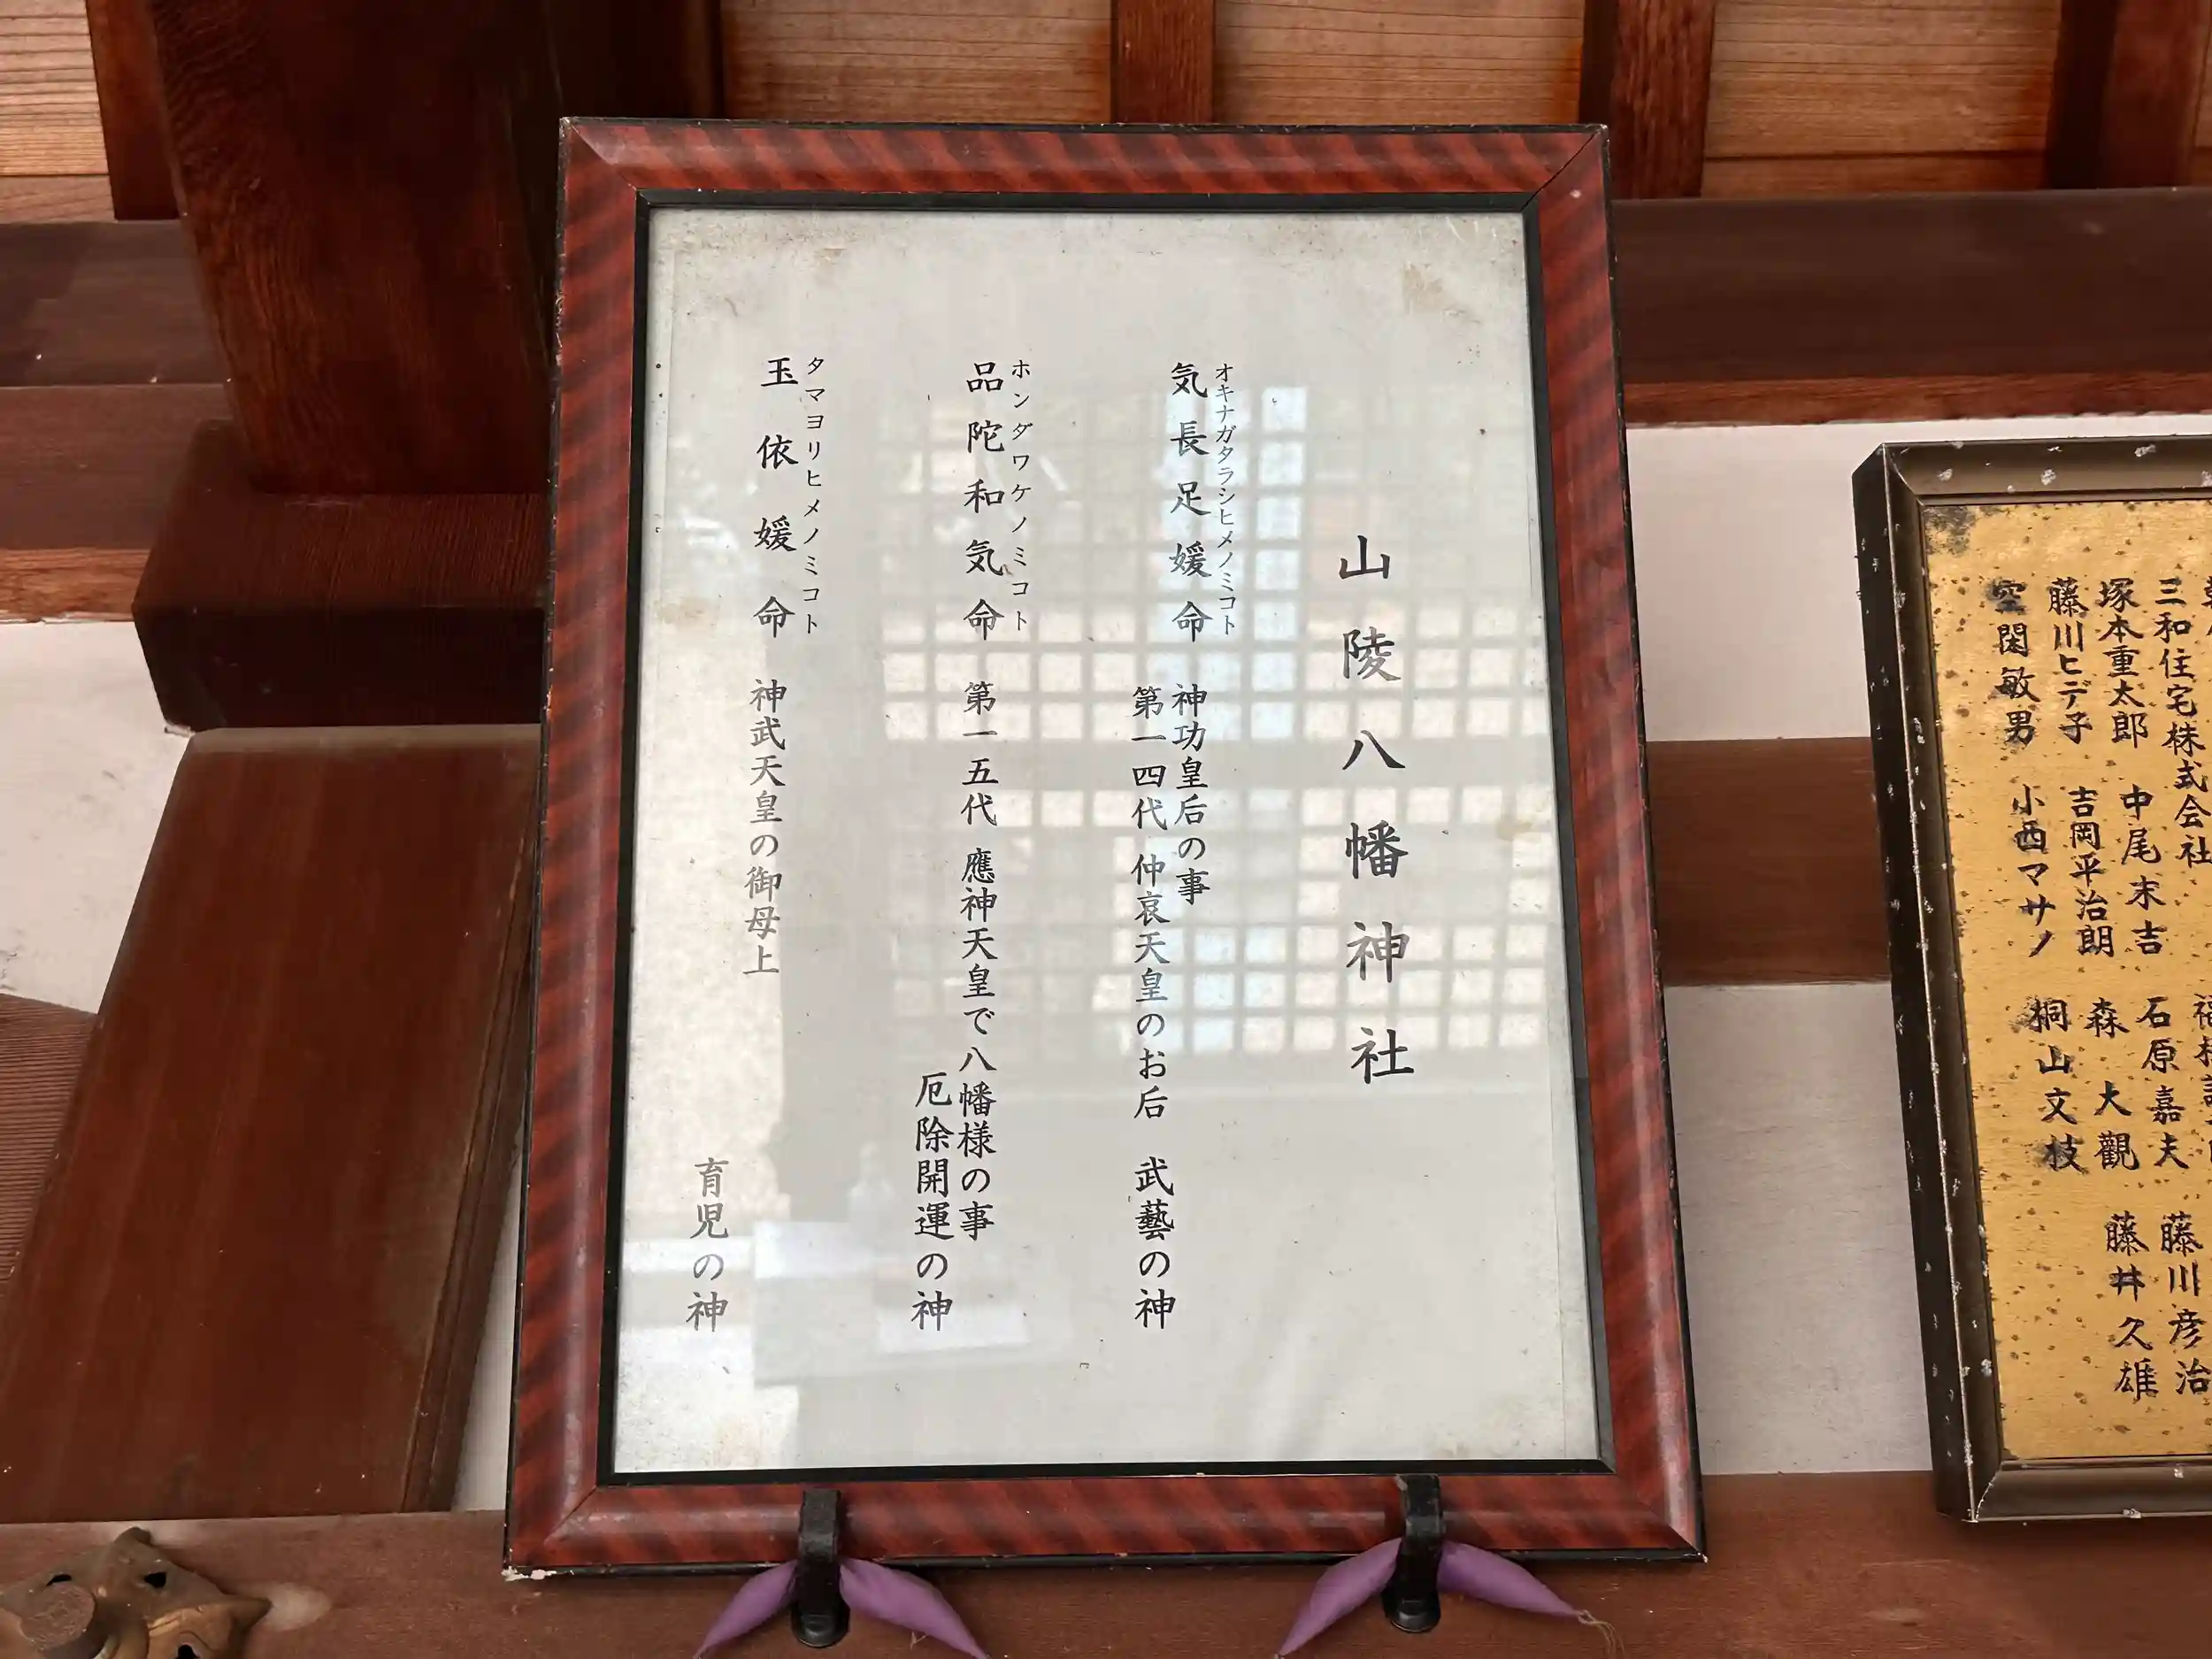 山陵八幡神社
オキナガタラシヒメノミコト
気長足媛命
神功皇后の事
第一四代 仲哀天皇のお后 武藝の神
ホンダワケノミコト
品陀和気命
第一五代 應神天皇で八幡様の事
厄除開運の神
タマヨリヒメノミコト
玉依媛命
神武天皇の御母上
育児の神
三和住宅株式会社
塚本重太郎 中尾末吉 石原嘉夫 藤川彦治
藤川ヒデ子 吉岡平治朗 森大觀 藤井久雄
空閑敏男 小西マサノ 桐山文枝